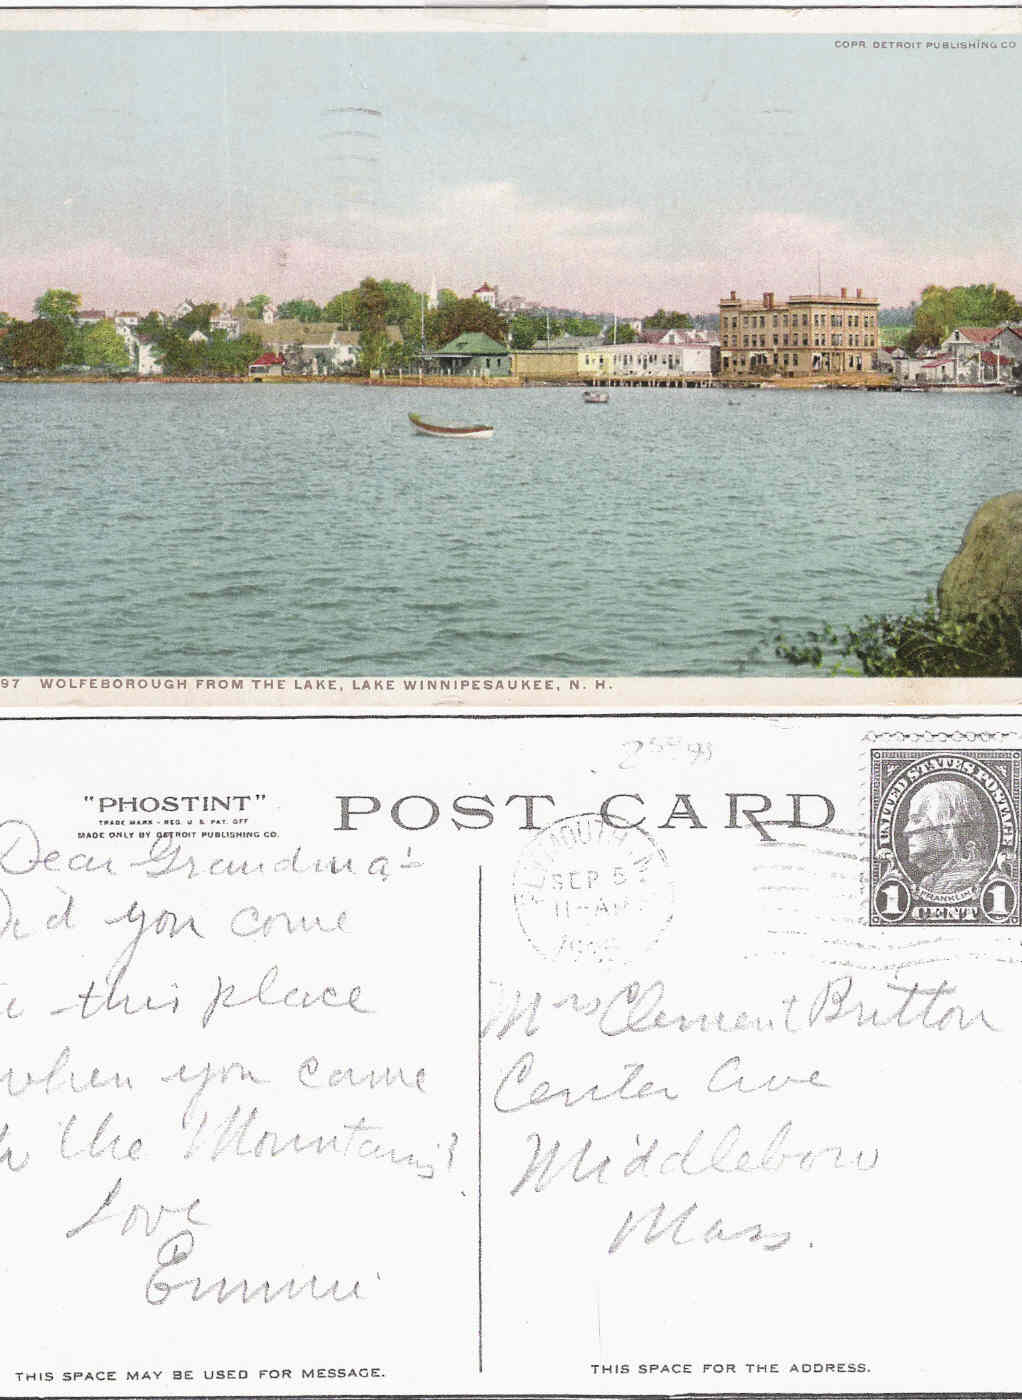 COPR. DETROIT PUBLISHING CO
97 WOLFEBOROUGH FROM THE LAKE, LAKE WINNIPESAUKEE, N. H.
"PHOSTINT"
TRADE MARK - REG. U. S. PAT. OFF
MADE ONLY BY DETROIT PUBLISHING CO.
POST CARD
UNITED STATES POSTAGE
FRANKLIN
1 CENT 1
SEP 5
11-AM
Dear Grandma:-
Did you come
to this place
when you came
to the Mountains?
Love
Emmie
Mrs Clement Britton
Center Ave
Middleboro
Mass.
THIS SPACE MAY BE USED FOR MESSAGE.
THIS SPACE FOR THE ADDRESS.